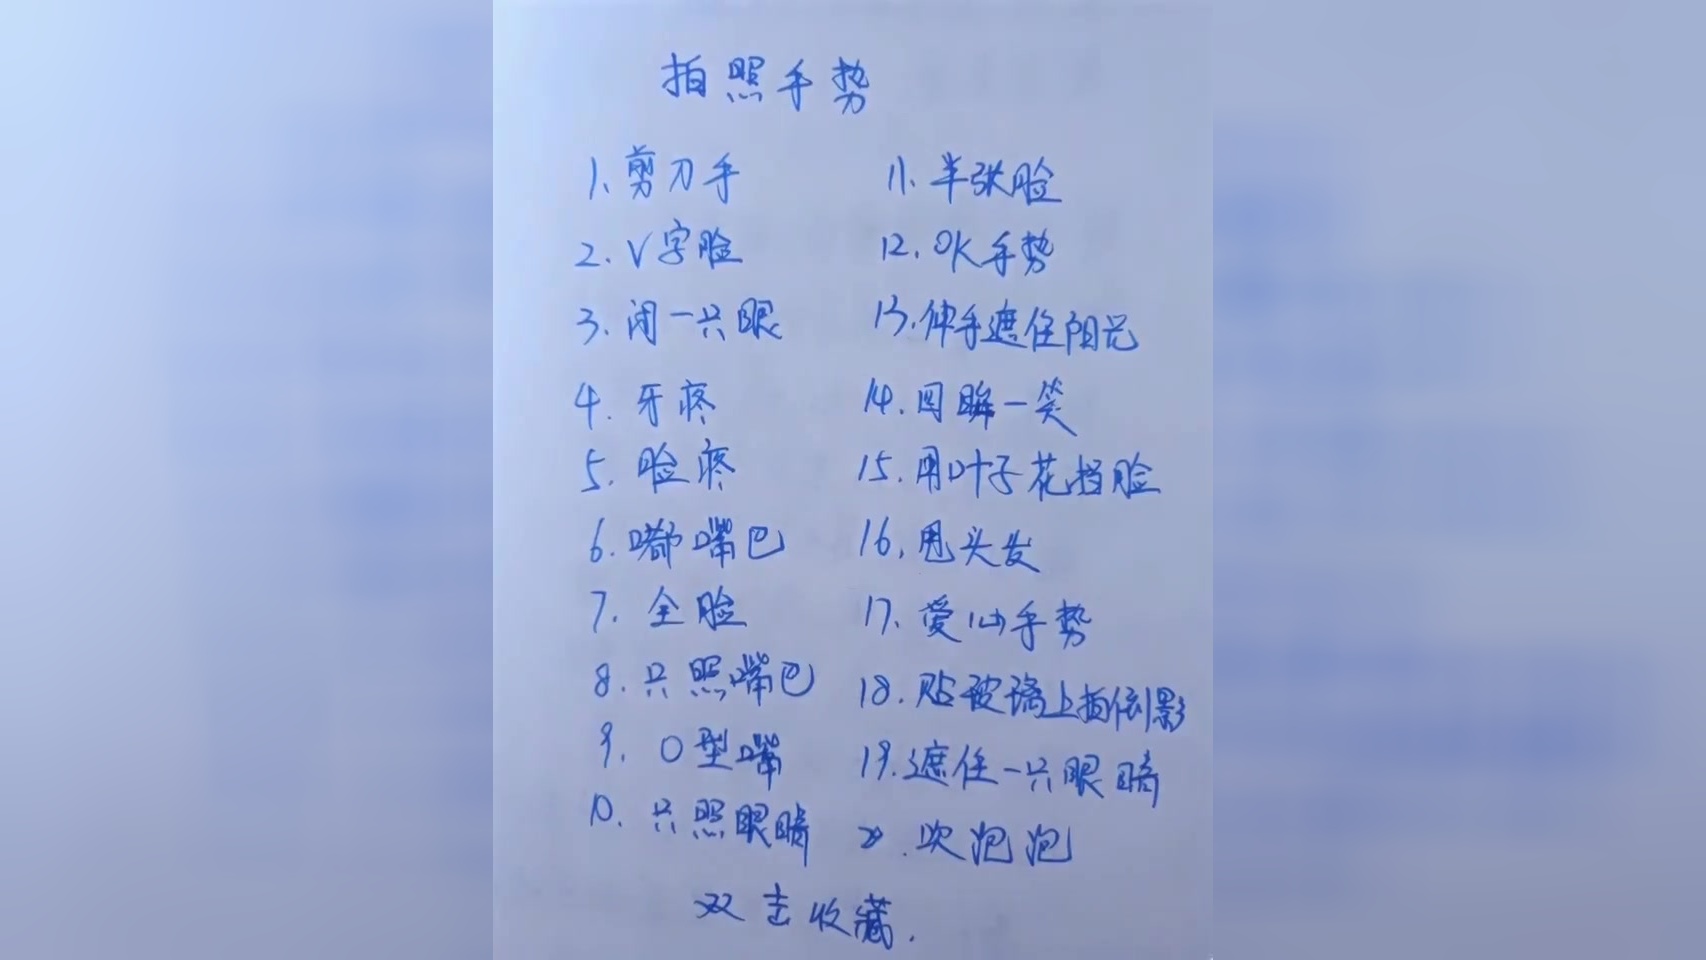 拍照手势
1、剪刀手
2. V字脸
3. 闭一只眼
4. 牙疼
5. 脸疼
6. 嘟嘴巴
7. 全脸
8. 只照嘴巴
9. O型嘴
10. 只照眼睛
11、半张脸
12. OK手势
13. 伸手遮住阳光
14. 回眸一笑
15. 用叶子花挡脸
16. 甩头发
17. 爱心手势
18. 贴玻璃上拍倒影
19. 遮住一只眼睛
20. 吹泡泡
双击收藏.